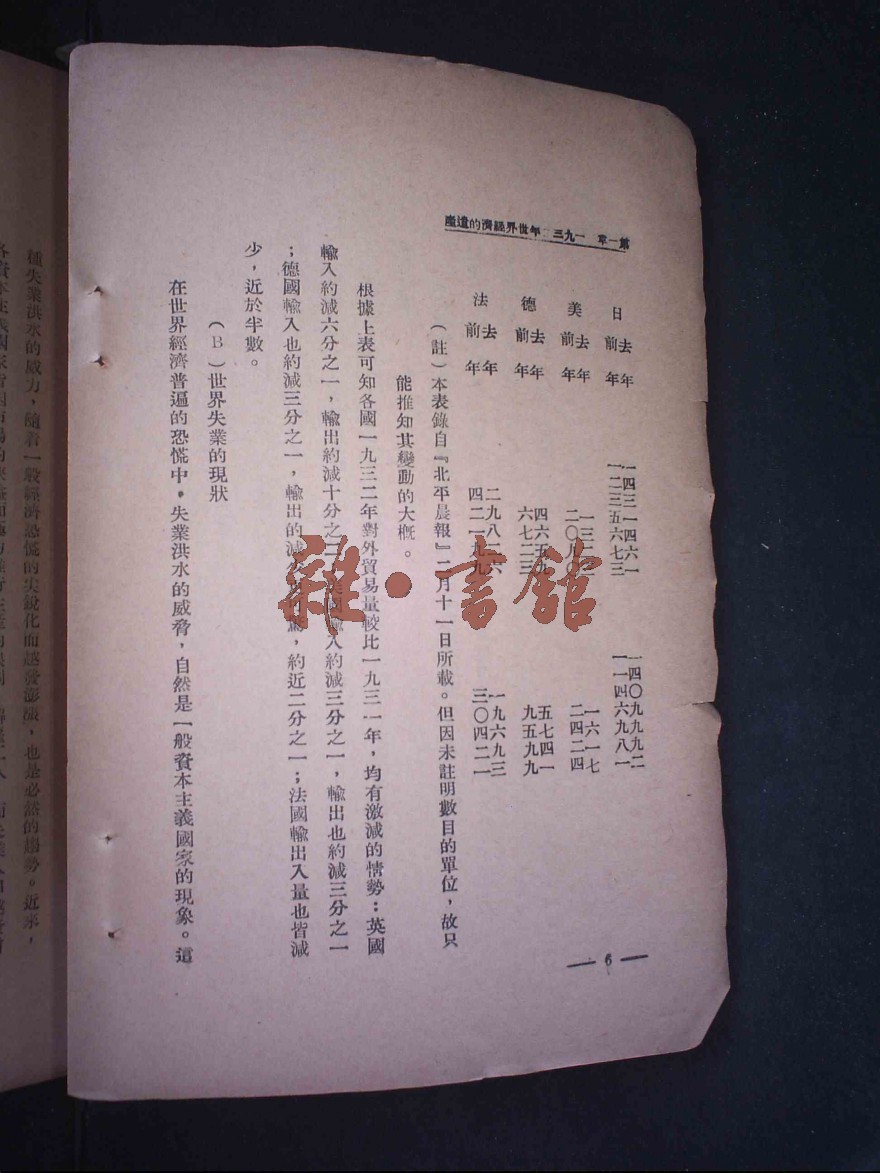 第一章 一九三 年世界經濟的遺產
日 去年 一四三一四六一 一四〇九九九二
前年 一二三五六七三 一一四六九八一
美 去年 一六一七
前年 二四二四
德 去年 五七四一
前年 六七二三 九五九九
法 去年 二九八二六 一九六九三
前年 四二一九九 三〇四二一
(註)本表錄自『北平晨報』二月十一日所載。但因未註明數目的單位，故只
能推知其變動的大概。
根據上表可知各國一九三二年對外貿易量較比一九三一年，均有激減的情勢：英國
輸入約減六分之一，輸出約減十分之 國輸入約減三分之一，輸出也約減三分之一
；德國輸入也約減三分之一，輸出的減 ，約近二分之一；法國輸出入量也皆減
少，近於半數。
(B)世界失業的現狀
在世界經濟普遍的恐慌中，失業洪水的威脅，自然是一般資本主義國家的現象。這
— 6 —
種失業洪水的威力，隨着一般經濟恐慌的尖銳化而越發澎漲，也是必然的趨勢。近來，
雜·書館